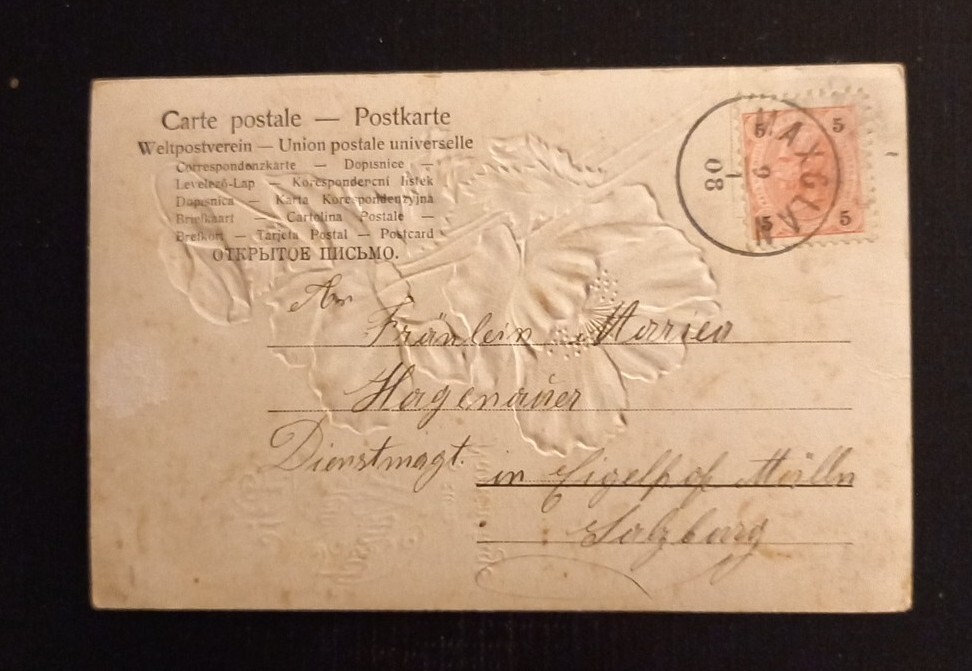 Carte postale — Postkarte
Weltpostverein — Union postale universelle
Correspondenzkarte — Dopisnice —
Levelező-Lap — Korespondencní lístek
Dopisnica — Karta Korespondenzyjna
Briefkaart — Cartolina Postale —
Brefkort — Tarjeta Postal — Postcard
ОТКРЫТОЕ ПИСЬМО.
5 5
5 5
MAXGLAN
9
1
08
An
Fräulein Maria
Hagenauer
Dienstmagt.
in Mülln
Salzburg